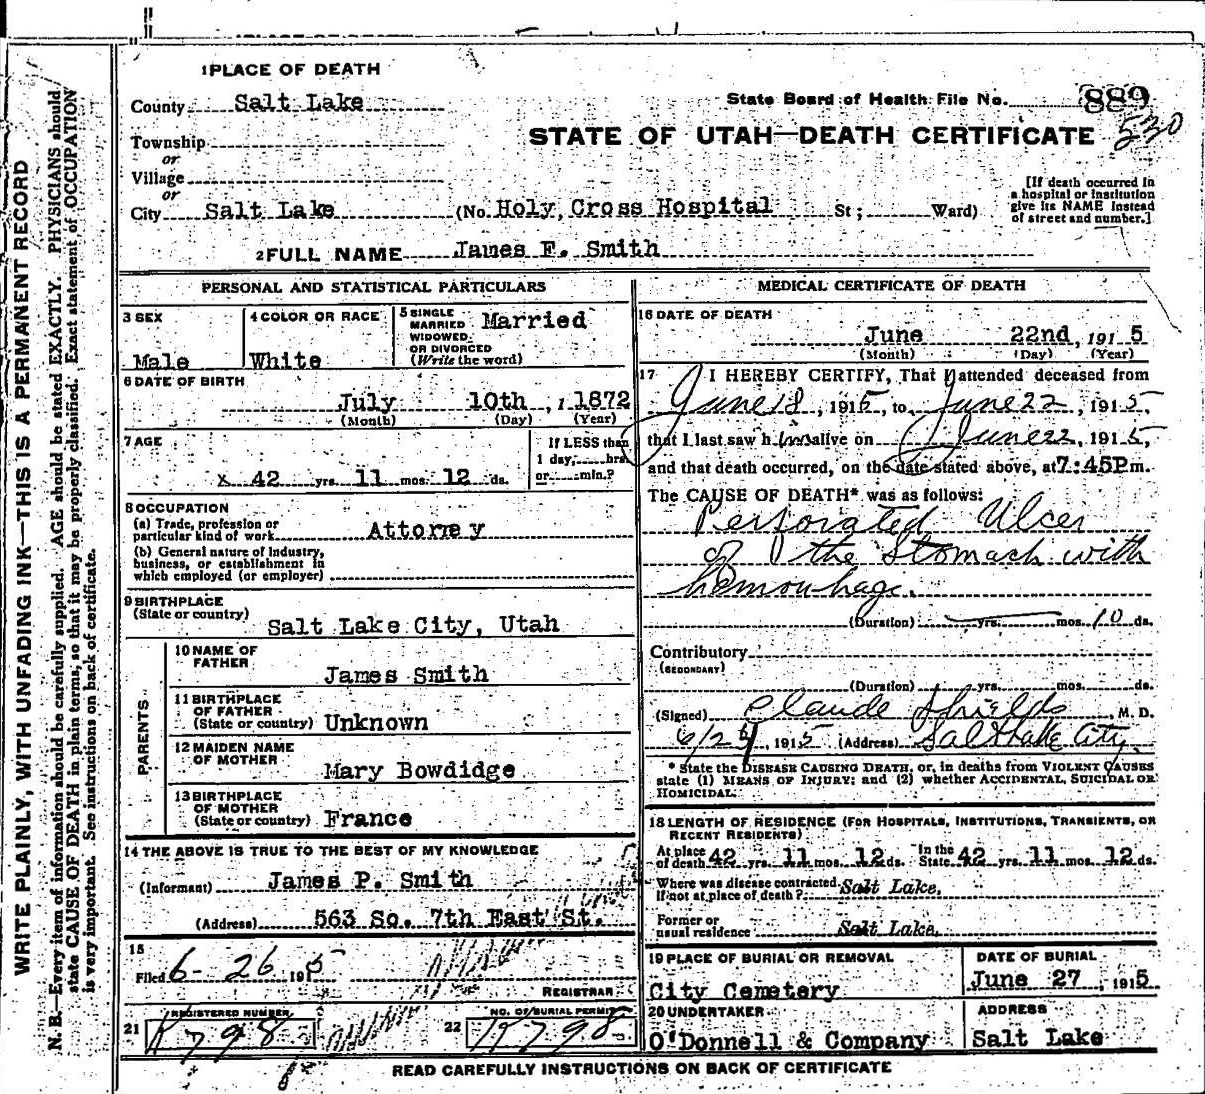 1 PLACE OF DEATH
County Salt Lake
State Board of Health File No. 889
530
STATE OF UTAH—DEATH CERTIFICATE
Township
or
Village
or
City Salt Lake (No. Holy Cross Hospital St; Ward)
[If death occurred in
a hospital or institution
give its NAME instead
of street and number.]
2 FULL NAME James E. Smith
PERSONAL AND STATISTICAL PARTICULARS
3 SEX
Male
4 COLOR OR RACE
White
5 SINGLE
MARRIED
WIDOWED
OR DIVORCED
(Write the word)
Married
6 DATE OF BIRTH
July 10th, 1 1872
(Month) (Day) (Year)
7 AGE
x 42 yrs. 11 mos. 12 ds.
If LESS than
1 day, hrs.
or min.?
8 OCCUPATION
(a) Trade, profession or
particular kind of work Attorney
(b) General nature of Industry,
business, or establishment in
which employed (or employer)
9 BIRTHPLACE
(State or country)
Salt Lake City, Utah
PARENTS
10 NAME OF
FATHER
James Smith
11 BIRTHPLACE
OF FATHER
(State or country) Unknown
12 MAIDEN NAME
OF MOTHER
Mary Bowdidge
13 BIRTHPLACE
OF MOTHER
(State or country) France
14 THE ABOVE IS TRUE TO THE BEST OF MY KNOWLEDGE
(Informant) James P. Smith
(Address) 563 So. 7th East St.
15
Filed 6-26 1915
REGISTRAR
21 REGISTERED NUMBER
K798
22 NO. OF BURIAL PERMIT
K798
MEDICAL CERTIFICATE OF DEATH
16 DATE OF DEATH
June 22nd, 1915
(Month) (Day) (Year)
17 I HEREBY CERTIFY, That I attended deceased from
June 18, 1915, to June 22, 1915,
that I last saw him alive on June 22, 1915,
and that death occurred, on the date stated above, at 7:45P m.
The CAUSE OF DEATH* was as follows:
Perforated Ulcer
of the Stomach with
hemorrhage.
(Duration) yrs. mos. 10 ds.
Contributory
(SECONDARY)
(Duration) yrs. mos. ds.
(Signed) Claude Shields, M. D.
6/25, 1915 (Address) Salt Lake City.
* State the DISEASE CAUSING DEATH, or, in deaths from VIOLENT CAUSES
state (1) MEANS OF INJURY; and (2) whether ACCIDENTAL, SUICIDAL OR
HOMICIDAL.
18 LENGTH OF RESIDENCE (FOR HOSPITALS, INSTITUTIONS, TRANSIENTS, OR
RECENT RESIDENTS)
At place
of death 42 yrs. 11 mos. 12 ds.
In the
State 42 yrs. 11 mos. 12 ds.
Where was disease contracted
if not at place of death? Salt Lake.
Former or
usual residence Salt Lake.
19 PLACE OF BURIAL OR REMOVAL
City Cemetery
DATE OF BURIAL
June 27, 1915
20 UNDERTAKER
O'Donnell & Company
ADDRESS
Salt Lake
READ CAREFULLY INSTRUCTIONS ON BACK OF CERTIFICATE
WRITE PLAINLY, WITH UNFADING INK—THIS IS A PERMANENT RECORD
N. B.—Every item of information should be carefully supplied. AGE should be stated EXACTLY. PHYSICIANS should
state CAUSE OF DEATH in plain terms, so that it may be properly classified. Exact statement of OCCUPATION
is very important. See instructions on back of certificate.